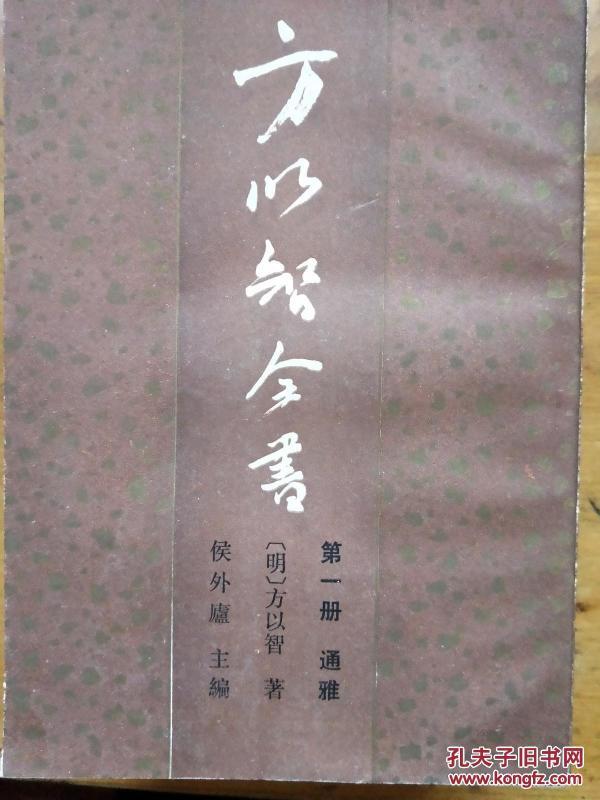 方以智全書
第一册 通雅
〔明〕方以智 著
侯外廬 主編
孔夫子旧书网
www.kongfz.com